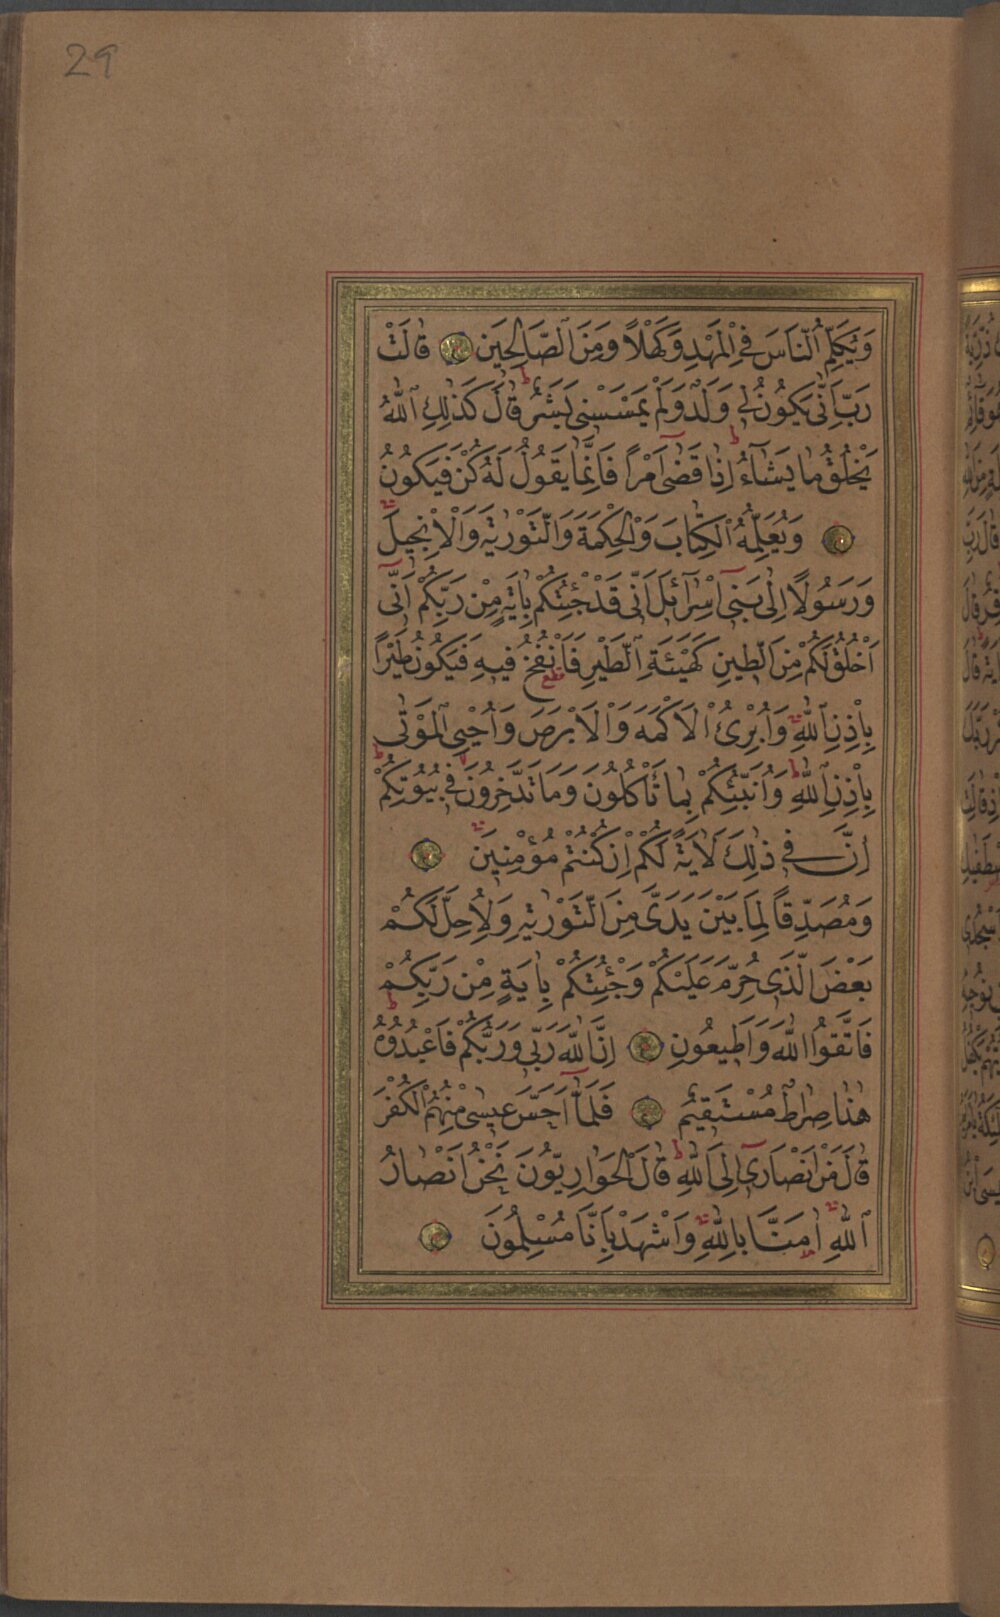 29
وَيُكَلِّمُ ٱلنَّاسَ فِى ٱلْمَهْدِ وَكَهْلًا وَمِنَ ٱلصَّالِحِينَ ۝ قَالَتْ
رَبِّ اَنّٰى يَكُونُ لِى وَلَدٌ وَلَمْ يَمْسَسْنِى بَشَرٌ قَالَ كَذٰلِكِ ٱللّٰهُ
يَخْلُقُ مَا يَشَآءُ اِذَا قَضٰٓى اَمْرًا فَاِنَّمَا يَقُولُ لَهُ كُنْ فَيَكُونُ
۝ وَيُعَلِّمُهُ ٱلْكِتَابَ وَٱلْحِكْمَةَ وَٱلتَّوْرٰيةَ وَٱلْاِنْجِيلَ
وَرَسُولًا اِلٰى بَنِىٓ اِسْرَآئِلَ اَنِّى قَدْ جِئْتُكُمْ بِاٰيَةٍ مِنْ رَبِّكُمْ اَنِّىٓ
اَخْلُقُ لَكُمْ مِنَ ٱلطِّينِ كَهَيْئَةِ ٱلطَّيْرِ فَاَنْفُخُ فِيهِ فَيَكُونُ طَيْرًا
بِاِذْنِ ٱللّٰهِ وَاُبْرِئُ ٱلْاَكْمَهَ وَٱلْاَبْرَصَ وَاُحْيِى ٱلْمَوْتٰى
بِاِذْنِ ٱللّٰهِ وَاُنَبِّئُكُمْ بِمَا تَأْكُلُونَ وَمَا تَدَّخِرُونَ فِى بُيُوتِكُمْ
اِنَّ فِى ذٰلِكَ لَاٰيَةً لَكُمْ اِنْ كُنْتُمْ مُؤْمِنِينَ ۝
وَمُصَدِّقًا لِمَا بَيْنَ يَدَىَّ مِنَ ٱلتَّوْرٰيةِ وَلِاُحِلَّ لَكُمْ
بَعْضَ ٱلَّذِى حُرِّمَ عَلَيْكُمْ وَجِئْتُكُمْ بِاٰيَةٍ مِنْ رَبِّكُمْ
فَاتَّقُوا ٱللّٰهَ وَاَطِيعُونِ ۝ اِنَّ ٱللّٰهَ رَبِّى وَرَبُّكُمْ فَاعْبُدُوهُ
هٰذَا صِرَاطٌ مُسْتَقِيمٌ ۝ فَلَمَّآ اَحَسَّ عِيسٰى مِنْهُمُ ٱلْكُفْرَ
قَالَ مَنْ اَنْصَارِىٓ اِلَى ٱللّٰهِ قَالَ ٱلْحَوَارِيُّونَ نَحْنُ اَنْصَارُ
ٱللّٰهِ اٰمَنَّا بِاللّٰهِ وَاشْهَدْ بِاَنَّا مُسْلِمُونَ ۝